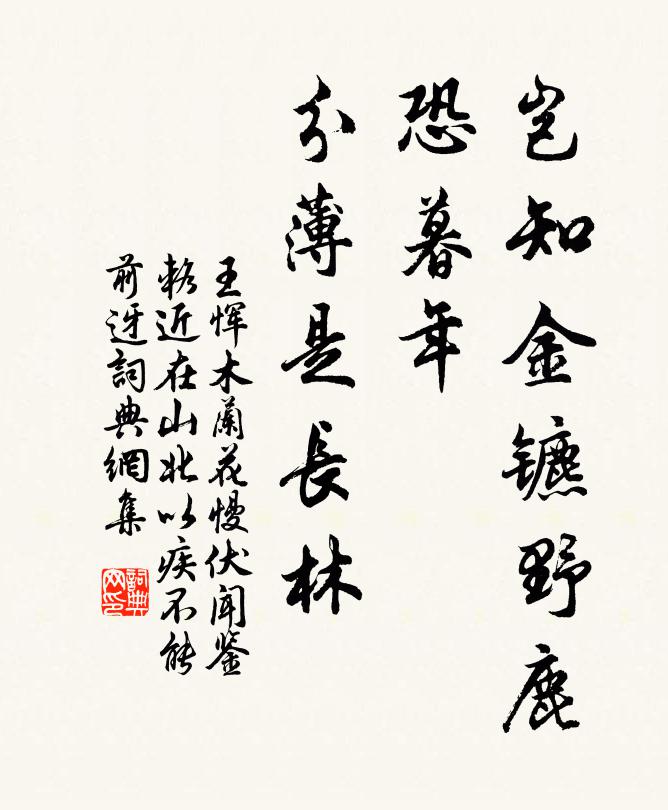 岂知金镳野鹿
恐暮年
分薄是長林
王恽木蘭花慢伏闻鉴
輅近在山北以疾不能
前迓詞典網集
詞典
网